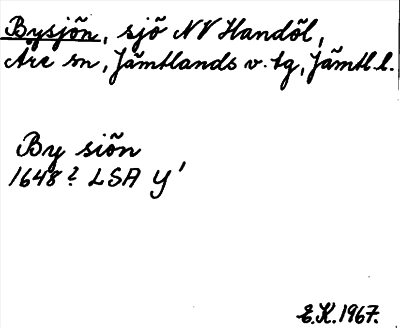 Bysjön, sjö NV Handöl,
Åre sn, Jämtlands v. tg, Jämtl. l.
By siön
1648? LSA Y'
E.K. 1967.